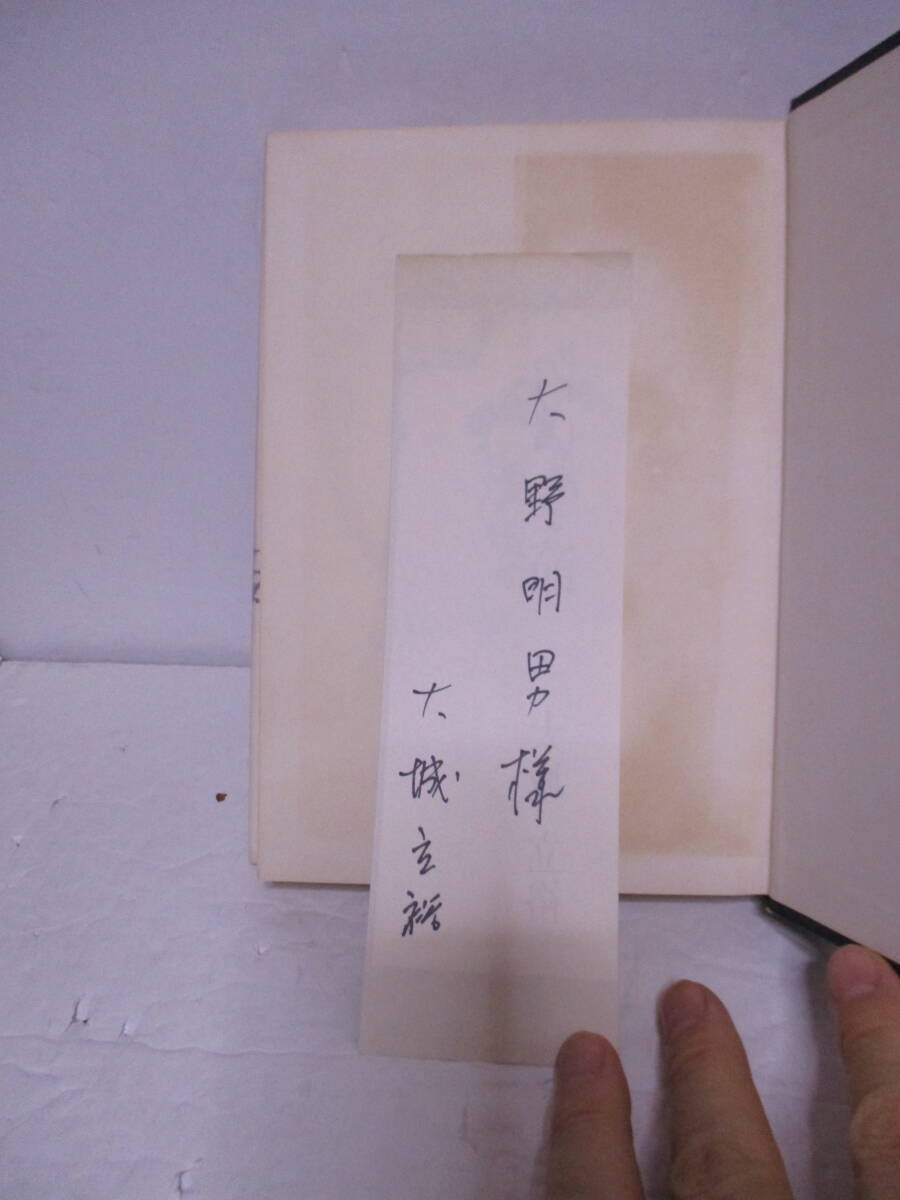 大野明男様
大城立裕